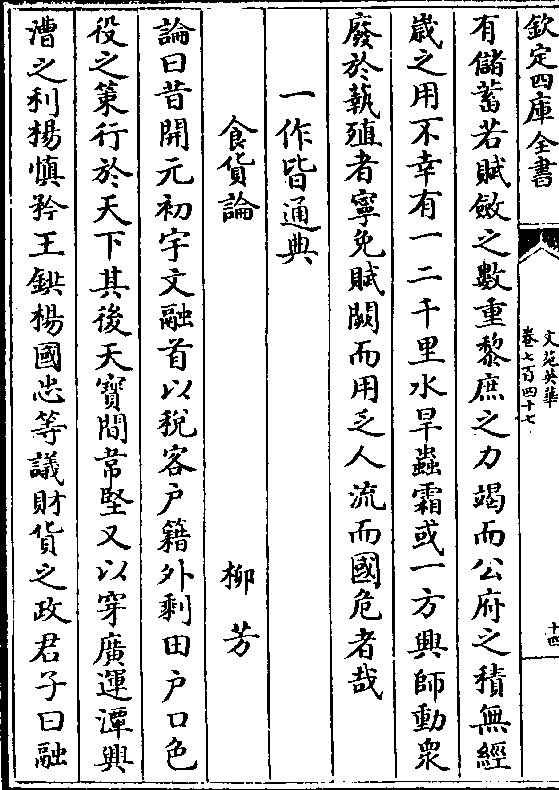 欽定四庫全書
文苑英華
卷七百四十七
十四
有儲蓄若賦斂之數重黎庶之力竭而公府之積無經
歲之用不幸有一二千里水旱蟲霜或一方興師動衆
廢於執殖者寧免賦闕而用乏人流而國危者哉
一作皆通典
食貨論 柳芳
論曰昔開元初宇文融首以稅客户籍外剩田户口色
役之策行於天下其後天寳間常堅又以穿廣運潭興
漕之利楊慎矜王鉷楊國忠等議財貨之政君子曰融